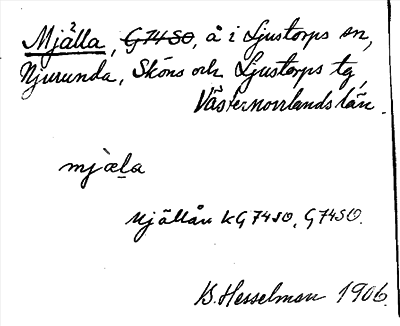 Mjälla, G74SO, å i Ljustorps sn,
Njurunda, Sköns och Ljustorps tg,
Västernorrlands län.
mjæla
Mjällån k G74SO, G74SO.
B. Hesselman 1906.